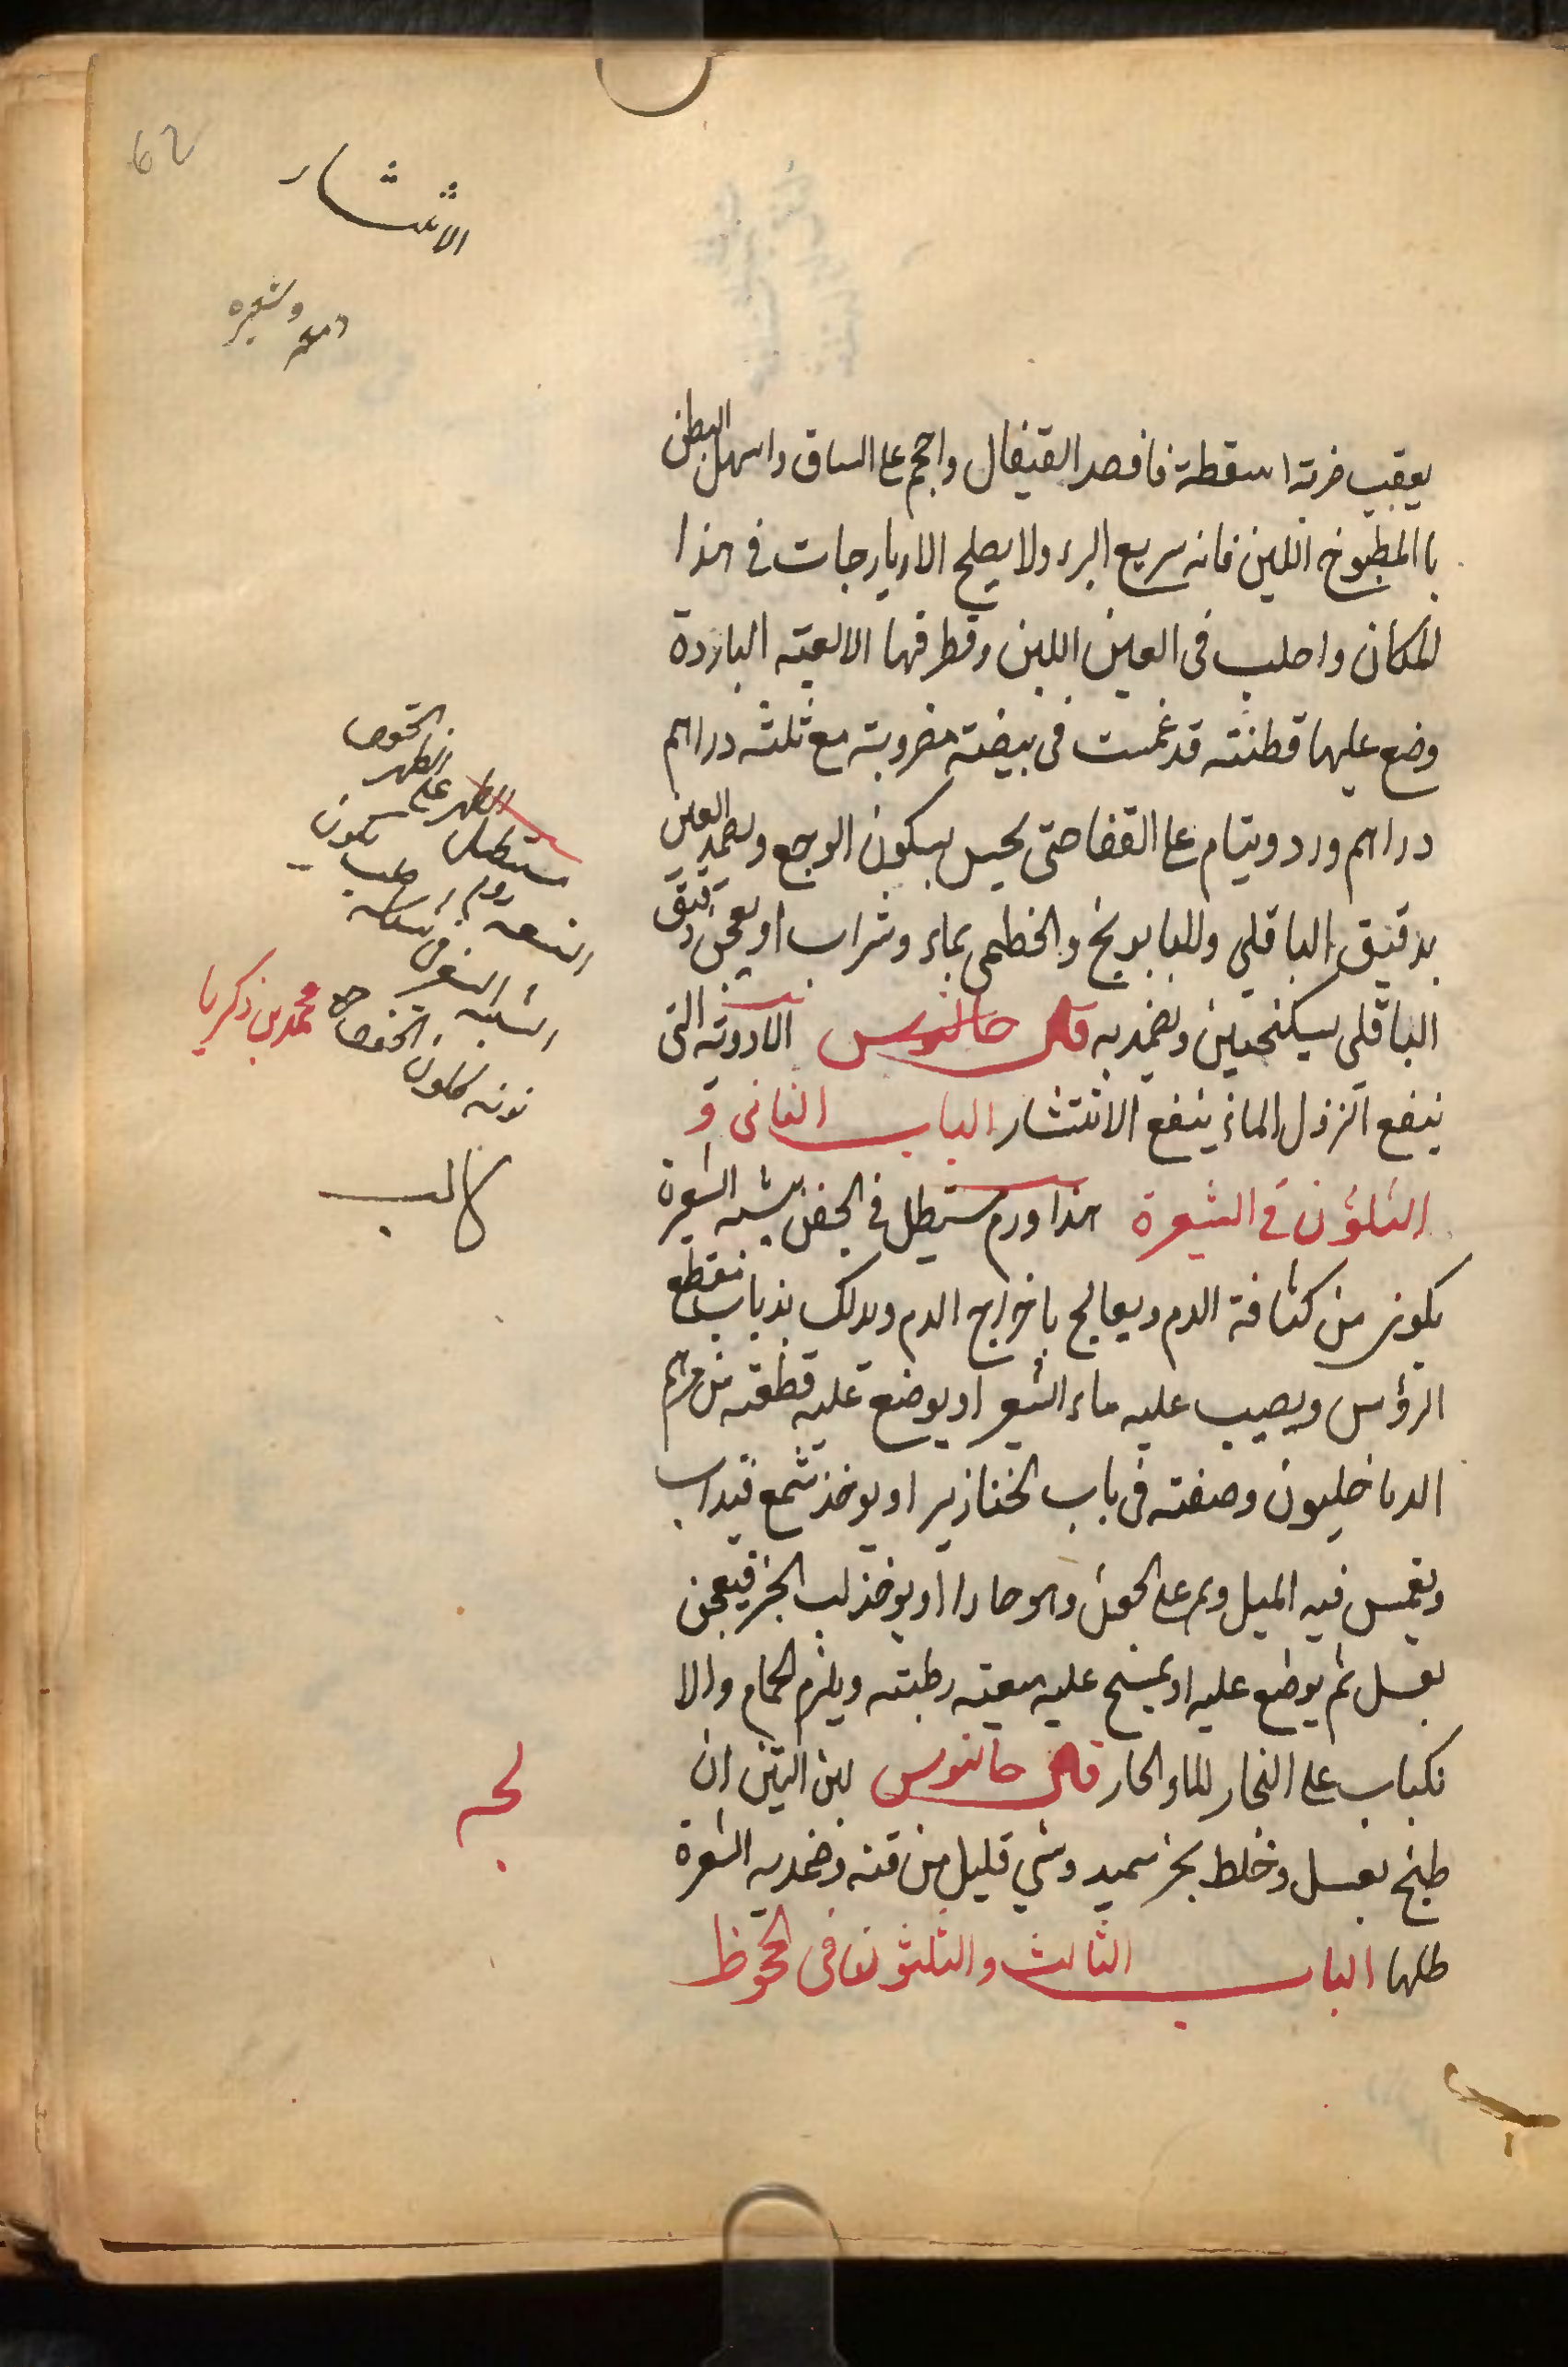 62
الانتشار
دمعه وشعيره
يعقب ضربة ا سقطة فافصد القيفال واحجم على الساق واسهل البطن
با المطبوخ اللين فانه سريع البرء ولا يصلح الاريارجات فى هذا
المكان واحلب فى العين اللبن وقطر فيها الالعية الباردة
وضع عليها قطنته قد غمست فى بيضته مضروبته مع ثلثه دراهم
دراهم ورد وينام على القفا حتى يحس بسكون الوجع ويضمد العين
بدقيق الباقلى وللبابونج والخطمى بماء وشراب او يعجن دقيق
الباقلى بسكنجبين ويضمد به قال جالنوس الادوته التى
ينفع النزول الماء ينفع الانتشار الباب الثانى و
الثلثون فى الشعرة هذا ورم مستطيل فى الجفن يشبه الشعيرة
يكون من كثافة الدم ويعالج باخراج الدم ويدلك بذباب منقطع
الرؤس ويصب عليه ماء الشعير او يوضع عليه قطعته من مرهم
الدياخليون وصفته فى باب الخنازير او يوخذ شمع فيذاب
ويغمس فيه الميل ويمر على الجفن وهو حار ا او يوخذ لب الخبز فيعجن
بعسل ثم يوضع عليه او يمسح عليه ميعته رطبته ويلزم الحمام والا
نكباب على البخار للماء الحار قال جالنوس لبن التين ان
طبخ بعسل وخلط بخبز سميد وشي قليل من قنه وضمد به الشعرة
حللها الباب الثالث والثلثون فى الجحوظ
محمد بن زكريا
كالب
لجه